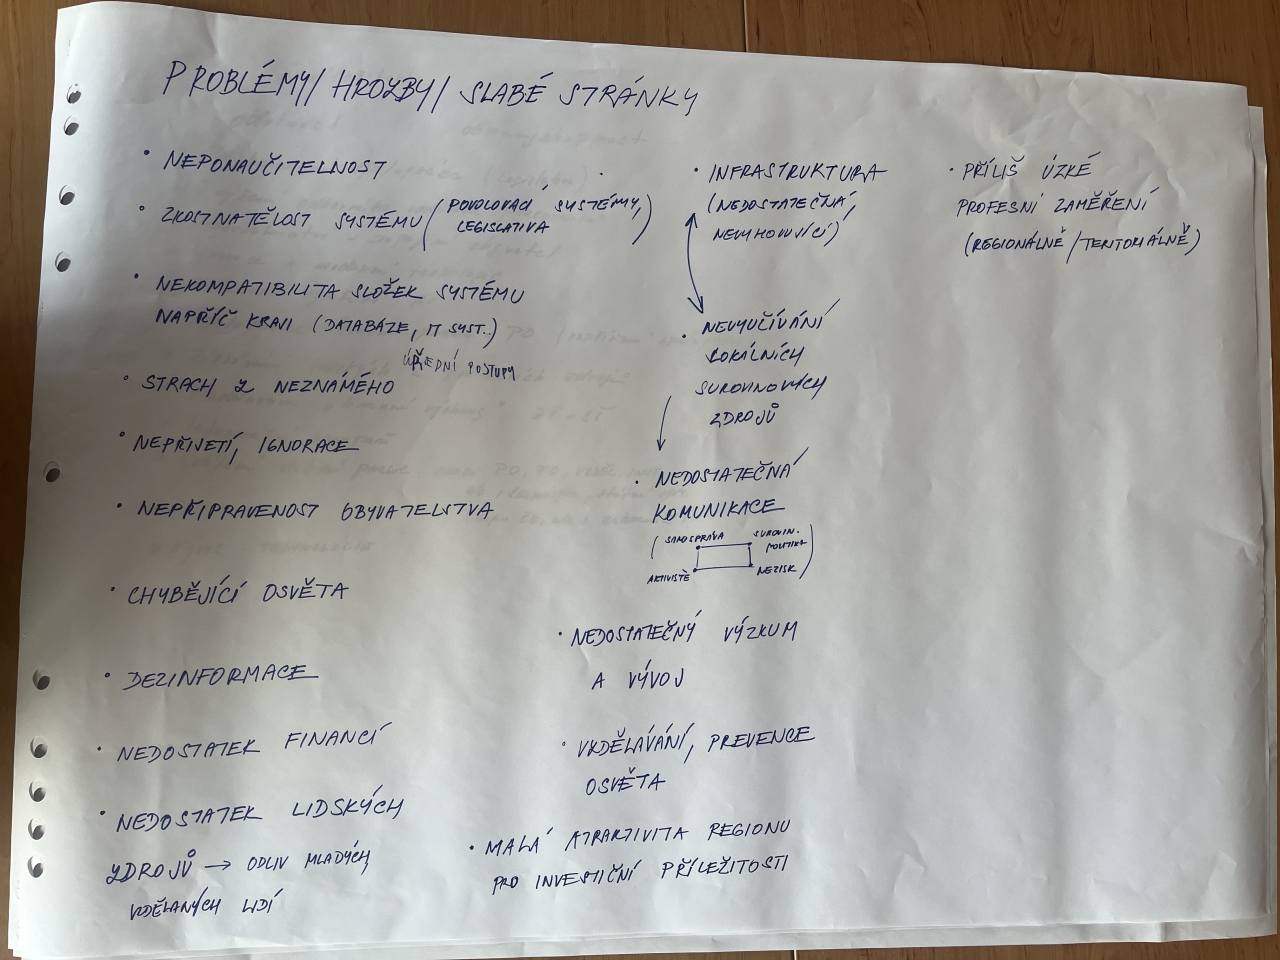 PROBLÉMY/HROZBY/SLABÉ STRÁNKY
• NEPONAUČITELNOST
• ZKOSTNATĚLOST SYSTÉMU (POVOLOVACÍ SYSTÉMY,
LEGISLATIVA)
• NEKOMPATIBILITA SLOŽEK SYSTÉMU
NAPŘÍČ KRAJI (DATABÁZE, IT SYST..)
ÚŘEDNÍ POSTUPY
• STRACH Z NEZNÁMÉHO
• NEPŘIJETÍ, IGNORACE
• NEPŘIPRAVENOST OBYVATELSTVA
• CHYBĚJÍCÍ OSVĚTA
• DEZINFORMACE
• NEDOSTATEK FINANCÍ
• NEDOSTATEK LIDSKÝCH
ZDROJŮ → ODLIV MLADÝCH
VZDĚLANÝCH LIDÍ
• INFRASTRUKTURA
(NEDOSTATEČNÁ,
NEVYHOVUJÍCÍ)
• NEVYUŽÍVÁNÍ
LOKÁLNÍCH
SUROVINOVÝCH
ZDROJŮ
• NEDOSTATEČNÁ
KOMUNIKACE
(SAMOSPRÁVA SUROVIN.
POLITIKA
AKTIVISTÉ NEZISK)
• NEDOSTATEČNÝ VÝZKUM
A VÝVOJ
• VZDĚLÁVÁNÍ, PREVENCE
OSVĚTA
• MALÁ ATRAKTIVITA REGIONU
PRO INVESTIČNÍ PŘÍLEŽITOSTI
• PŘÍLIŠ ÚZKÉ
PROFESNÍ ZAMĚŘENÍ
(REGIONÁLNĚ/TERITORIÁLNĚ)